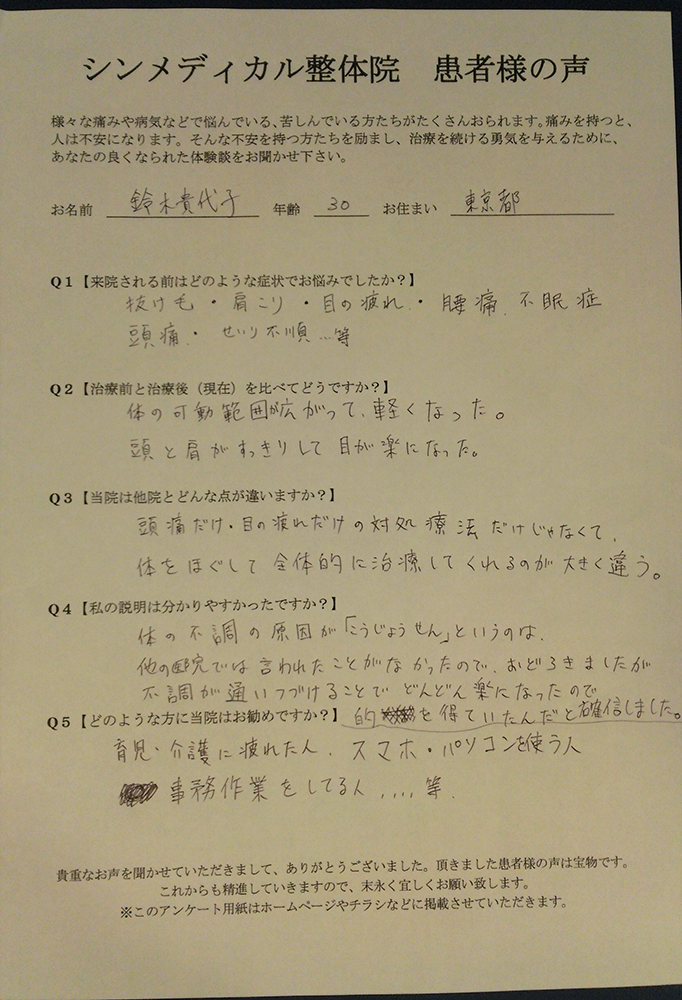 シンメディカル整体院　患者様の声
様々な痛みや病気などで悩んでいる、苦しんでいる方たちがたくさんおられます。痛みを持つと、
人は不安になります。そんな不安を持つ方たちを励まし、治療を続ける勇気を与えるために、
あなたの良くなられた体験談をお聞かせ下さい。
お名前　鈴木貴代子　年齢　30　お住まい　東京都
Q1【来院される前はどのような症状でお悩みでしたか？】
抜け毛・肩こり・目の疲れ・腰痛、不眠症
頭痛・せいり不順…等
Q2【治療前と治療後（現在）を比べてどうですか？】
体の可動範囲が広がって、軽くなった。
頭と肩がすっきりして目が楽になった。
Q3【当院は他院とどんな点が違いますか？】
頭痛だけ・目の疲れだけの対処療法だけじゃなくて、
体をほぐして全体的に治療してくれるのが大きく違う。
Q4【私の説明は分かりやすかったですか？】
体の不調の原因が「こうじょうせん」というのは、
他の医院では言われたことがなかったので、おどろきましたが
不調が通いつづけることでどんどん楽になったので
的を得ていたんだと確信しました。
Q5【どのような方に当院はお勧めですか？】
育児・介護に疲れた人、スマホ・パソコンを使う人
事務作業をしてる人、、、、等、
貴重なお声を聞かせていただきまして、ありがとうございました。頂きました患者様の声は宝物です。
これからも精進していきますので、末永く宜しくお願い致します。
※このアンケート用紙はホームページやチラシなどに掲載させていただきます。